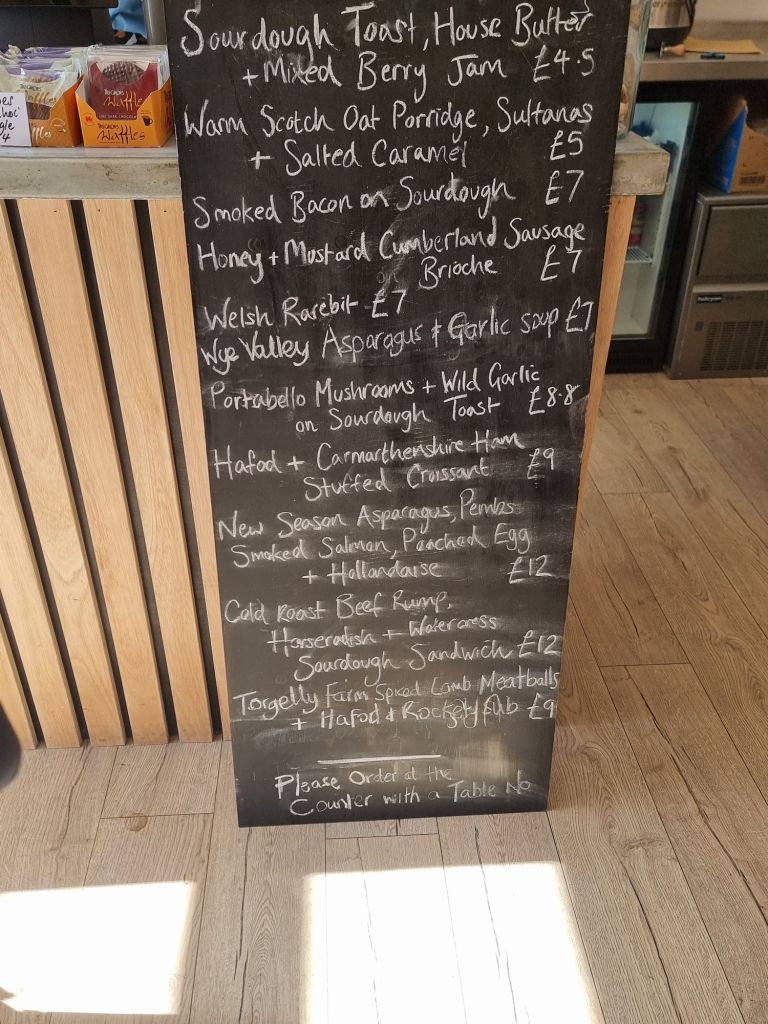 Sourdough Toast, House Butter
+ Mixed Berry Jam £4.5
Warm Scotch Oat Porridge, Sultanas
+ Salted Caramel £5
Smoked Bacon on Sourdough £7
Honey + Mustard Cumberland Sausage
Brioche £7
Welsh Rarebit £7
Wye Valley Asparagus & Garlic soup £7
Portabello Mushrooms + Wild Garlic
on Sourdough Toast £8.8
Hafod + Carmarthenshire Ham
Stuffed Croissant £9
New Season Asparagus, Pembs
Smoked Salmon, Poached Egg
+ Hollandaise £12
Cold Roast Beef Rump,
Horseradish + Watercress
Sourdough Sandwich £12
Torgelly Farm Spiced Lamb Meatballs
+ Hafod & Rocket sub £9
Please Order at the
Counter with a Table No
Tregroes
Waffles
Waffles